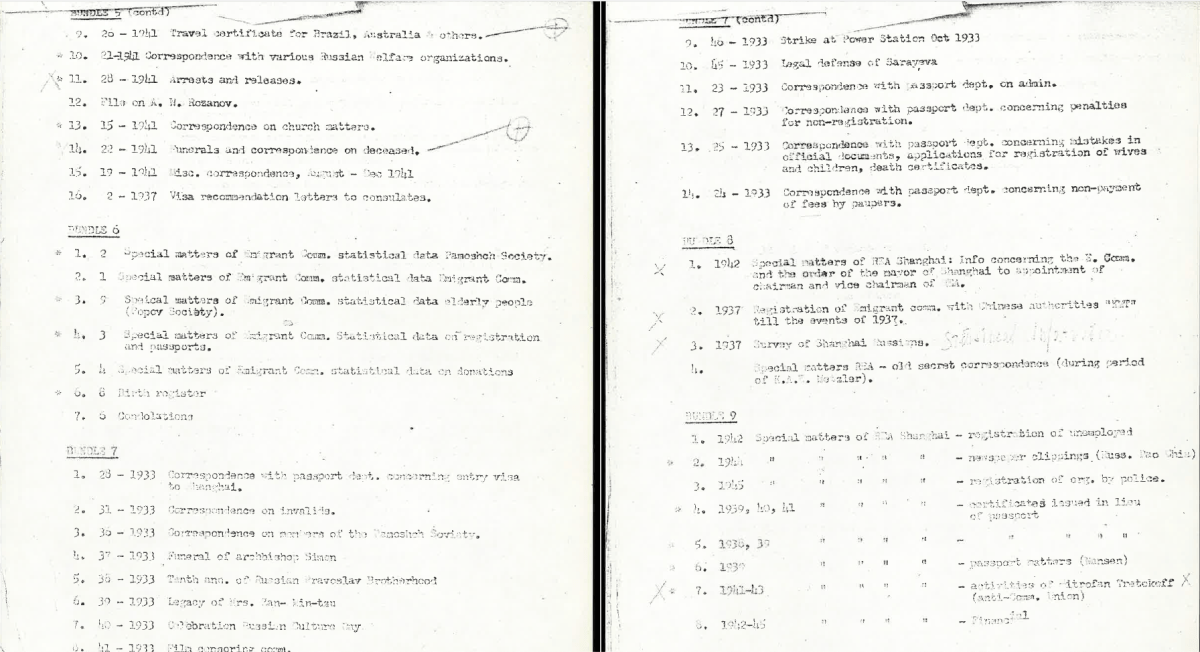 BUNDLE 5 (contd)
9. 26 - 1941 Travel certificate for Brazil, Australia & others.
* 10. 21-1941 Correspondence with various Russian Welfare organizations.
X * 11. 28 - 1941 Arrests and releases.
12. File on A. M. Rozanov.
* 13. 15 - 1941 Correspondence on church matters.
* 14. 22 - 1941 Funerals and correspondence on deceased.
15. 19 - 1941 Misc. correspondence, August - Dec 1941
16. 2 - 1937 Visa recommendation letters to consulates.
BUNDLE 6
* 1. 2 Special matters of Emigrant Comm. statistical data Pamoshch Society.
2. 1 Special matters of Emigrant Comm. statistical data Emigrant Comm.
* 3. 9 Speical matters of Emigrant Comm. statistical data elderly people
(Popov Society).
* 4. 3 Special matters of Emigrant Comm. Statistical data on registration
and passports.
5. 4 Special matters of Emigrant Comm. statistical data on donations
* 6. 8 Birth register
7. 6 Condolations
BUNDLE 7
1. 28 - 1933 Correspondence with passport dept. concerning entry visa
to Shanghai.
2. 31 - 1933 Correspondence on invalids.
3. 36 - 1933 Correspondence on members of the Pamoshch Soviaty.
4. 37 - 1933 Funeral of archbishop Simon
5. 38 - 1933 Tenth ann. of Russian Pravoslav Brotherhood
6. 39 - 1933 Legacy of Mrs. Han- Min-tzu
7. 40 - 1933 Celebration Russian Culture Day.
8. 41 - 1933 Film censoring comm.
BUNDLE 7 (contd)
9. 46 - 1933 Strike at Power Station Oct 1933
10. 45 - 1933 Legal defense of Sarayeva
11. 23 - 1933 Correspondence with passport dept. on admin.
12. 27 - 1933 Correspondence with passport dept. concerning penalties
for non-registration.
13. 25 - 1933 Correspondence with passport dept. concerning mistakes in
official documents, applications for registration of wives
and children, death certificates.
14. 24 - 1933 Correspondence with passport dept. concerning non-payment
of fees by paupers.
BUNDLE 8
X 1. 1942 Special matters of REA Shanghai: Info concerning the E. Comm.
and the order of the mayor of Shanghai to appointment of
chairman and vice chairman of
X 2. 1937 Registration of Emigrant comm. with Chinese authorities
till the events of 1937.
X 3. 1937 Survey of Shanghai Russians. Statistical
4. Special matters REA - old secret correspondence (during period
of Metzler).
BUNDLE 9
1. 1942 Special matters of REA Shanghai - registration of unemployed
* 2. 1944 " " " " " - newspaper clippings (Russ.
3. 1945 " " " " " - registration of org. by police.
* 4. 1939, 40, 41 " " " " - certificates issued in lieu
of passport
* 5. 1938, 39 " " " " - " " "
* 6. 1939 " " " " - passport matters (Nansen)
X * 7. 1941-43 " " " " - activities of Mitrofan Tretokoff X
(anti-Comm. Union)
8. 1942-45 " " " " - Financial